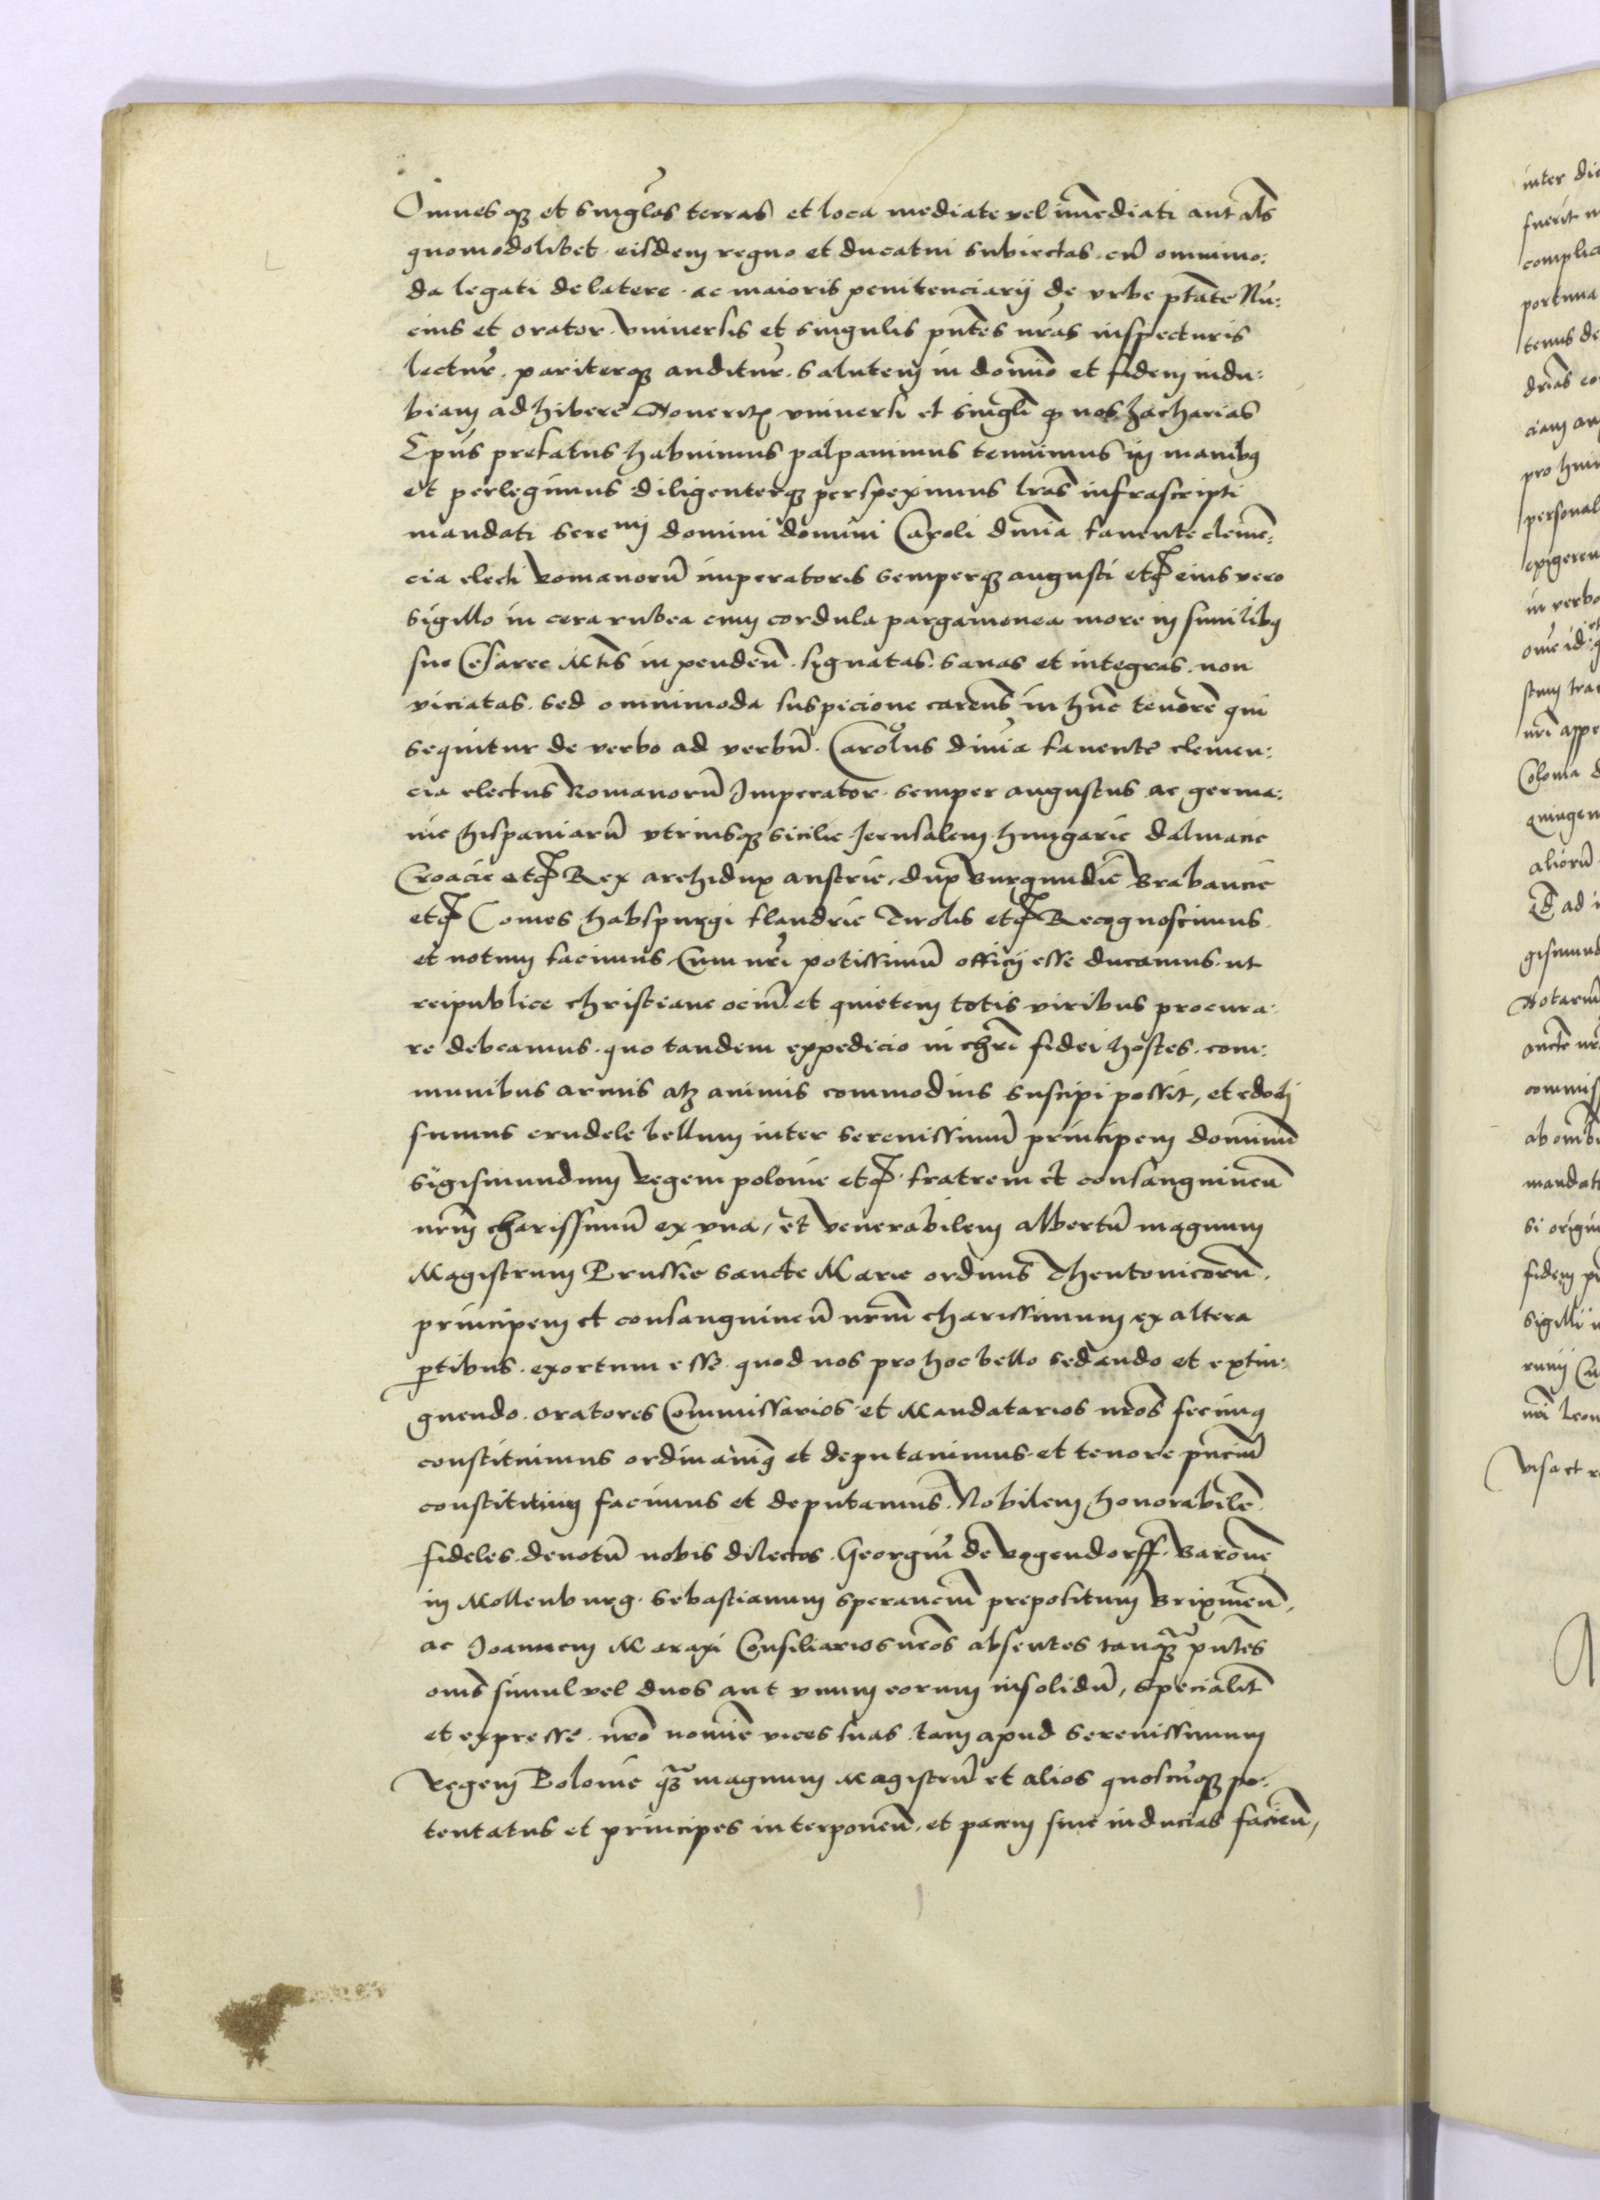 Omnesqȝ et singl̃as terras et loca mediate vel im̃ediati aut als̃
quomodolibet eisdem regno et ducatui subiectas. cũ omnimo:
da legati de latere. ac maioris penitenciarij de vrbe ptãte Nũ:
cius et orator. vniuersis et singulis pñtes nr̃as inspecturis
lectur̃. pariterqȝ auditur̃. Salutem in domiõ et fidem indu:
biam adhibere Nouerit vniuersi et singl̃i ꝙ nos Zacharias
Ep̃us prefatus habuimus palpauimus tenuimus in manibꝯ
et perlegimus diligenterqȝ perspeximus lr̃as infrascripti
mandati Sere^mi domini domini Caroli diuĩa fauente clemẽ:
cia electi Romanorũ imperatoris semperqȝ augusti etc̃ eius vero
sigillo in cera rubea cum cordula pargamenea more in similibꝯ
sue Cesaree Mt̃is in penden̄. signatas. sanas et integras. non
viciatas. sed omnimoda suspicione carens̃ in hũc tenorẽ qui
sequitur de verbo ad verbũ. Carolus diuĩa fauente clemen:
cia electus Romanorũ Imperator. semper augustus ac germa:
nie hispaniarũ vtriusqȝ Sicilie Jerusalem hungarie dalmacie
Croacie etc̃ Rex archidux austrie, dux Burgundie Brabancie
etc̃ Comes habspurgi flandrie Tirolis etc̃ Recognoscimus
et notum facimus Cum nr̃i potissimũ officij esse ducamus. ut
reipublice christiane ociũ et quietem totis viribus procura:
re debeamus. quo tandem expedicio in chr̃i fidei hostes. com:
munibus armis atqȝ animis commodius suscipi possit, et edocti
sumus crudele bellum inter serenissimũ principem dominũ
Sigismundum Regem polonie etc̃. fratrem et consanguineũ
nr̃m charissimũ ex vna, et venerabilem albertũ magnum
Magistrum Prussie Sancte Marie ordinis Theutonicorũ.
principem et consanguineũ nr̃m charissimum ex altera
ꝑtibus. exortum esse. quod nos pro hoc bello sedando et extin:
guendo. oratores Commissarios et Mandatarios nr̃os fecimꝯ
constituimus ordinauimꝯ et deputauimus. et tenore pñciũ
constituim facimus et deputamus. Nobilem honorabilẽ
fideles. deuotũ nobis dilectos. Georgiũ de Rogendorff. Baronẽ
in Mollenburg. Sebastianum Speranciũ prepositum Brixineñ,
ac Joannem Maraxi Consiliarios nr̃os absentes tanqȝ̃ pñtes
om̃s simul vel duos aut vnum eorum insolidũ, specialit̃
et expresse. nr̃o nomĩe vices suas. tam apud Serenissimum
Regem Polonie qȝ̃ magnum Magistrũ et alios quoscũqȝ po:
tentatus et principes interponeñ. et pacem siue inducias facieñ,